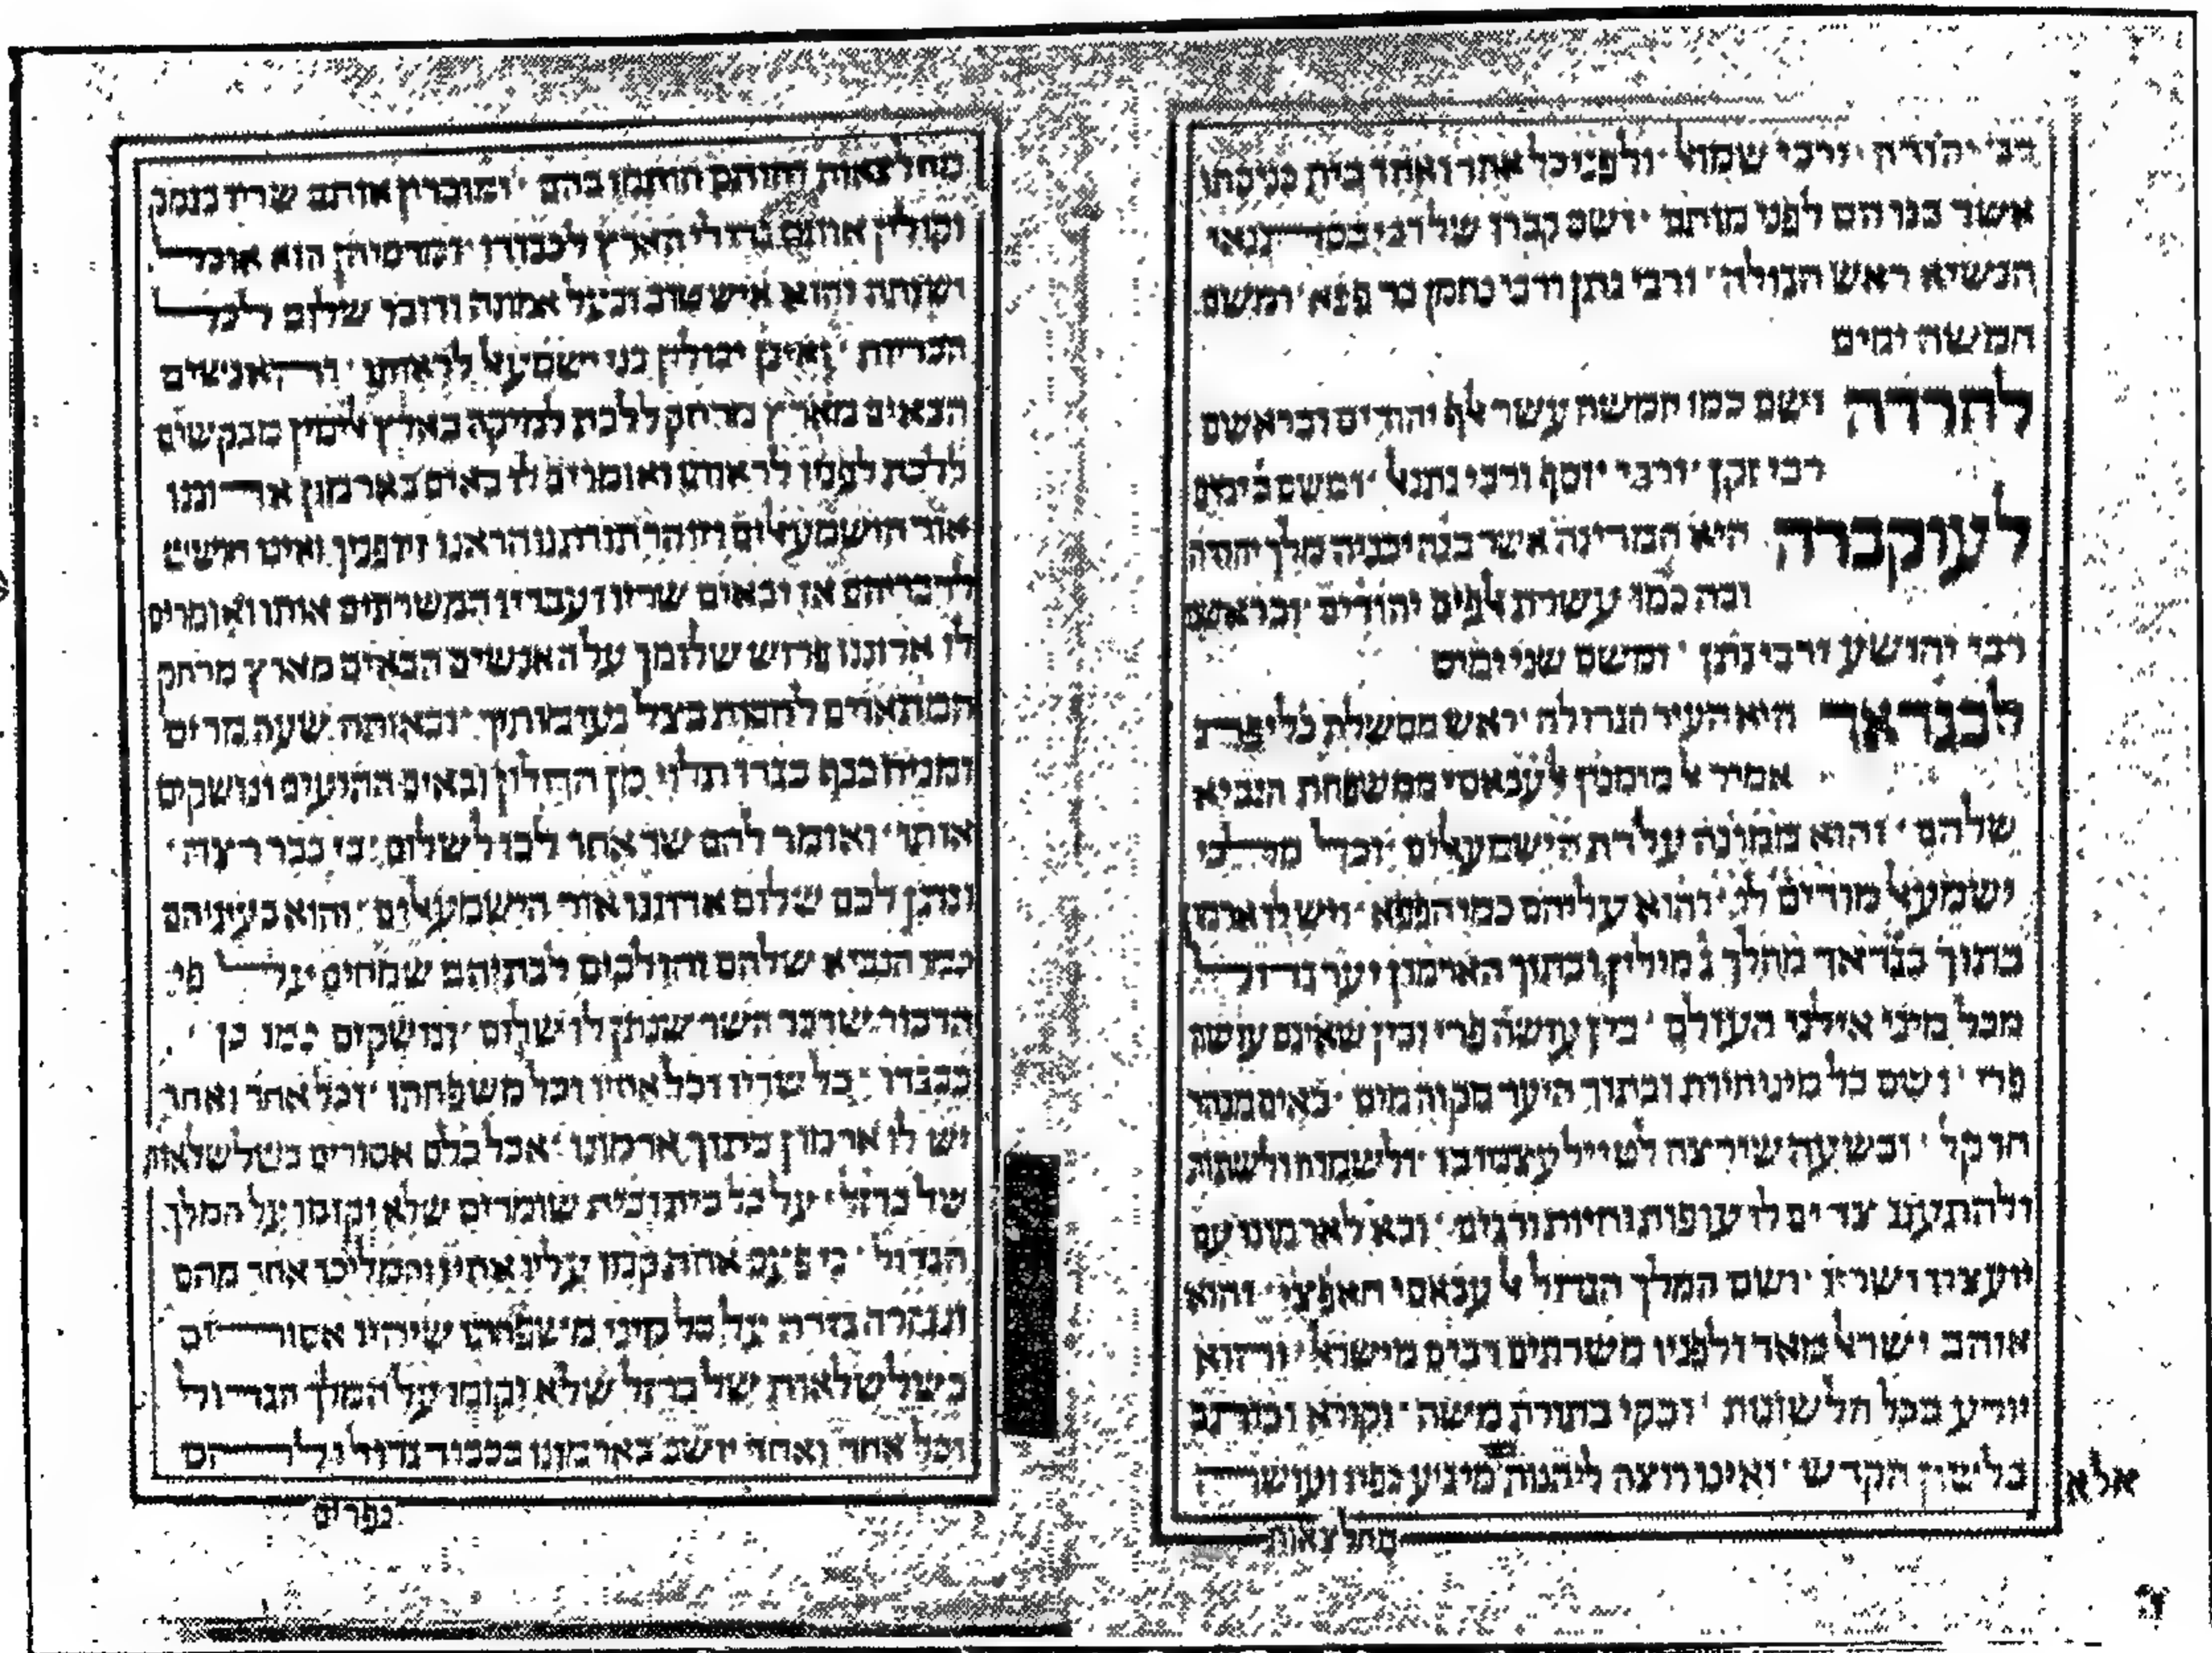 רבי יהודה ׳ ורבי שמול ׳ ולפני כל אחד ואחד בית כניסתו
אשר בנו הם לפני מותם ׳ ושם קברו של רבי בסתנאי
הנשיא ראש הגולה ׳ ורבי נתן ורבי נחמן בר פפא ׳ ומשם
חמשה ימים
לחרדה וישם כמו חמשה עשר אלף יהודים ובראשם
רבי זקן ׳ ורבי יוסף ורבי נתנאל ׳ ומשם ב ימים
לעוקברה היא המדינה אשר בנה יכניה מלך יהודה
ובה כמו עשרת אלפים יהודים ׳ ובראשם
רבי יהושע ורבי נתן ׳ ומשם שני ימים
לבגדאד היא העיר הגדולה ׳ ראש ממשלת כליפה
אמיר אל מומנין אל עבאסי ממשפחת הנביא
שלהם ׳ והוא ממונה על דת הישמעאלים ׳ וכל מלכי
ישמעאל מודים לו ׳ והוא עליהם כמו הפפא ׳ ויש לו ארמון
בתוך בגדאד מהלך ג מילין ובתוך הארמון יער גדול
מכל מיני אילני העולם ׳ בין עושה פרי ובין שאינם עושה
פרי ׳ ושם כל מיני חיות ובתוך היער מקוה מים ׳ באים מנהר
חדקל ׳ ובשעה שירצה לטייל עצמו בו ׳ ולשמוח ולשתות
ולהתענג צדים לו עופות וחיות ודגים ׳ ובא לארמונו עם
יועציו ושריו ׳ ושם המלך הגדול אל עבאסי חאפצי ׳ והוא
אוהב ישראל מאד ולפניו משרתים רבים מישראל ׳ והוא
יודע בכל הלשונות ׳ ובקי בתורת משה ׳ וקורא וכותב
בלשון הקדש ׳ ואינו רוצה ליהנות מיגיע כפיו ועושה
אלא
מחלצאות
מחלצאות וחותם חותמו בהם ׳ ומוכרין אותם שריו בנמכ
וקונין אותם גדולי הארץ לכבודו ׳ ומדמיהן הוא אוכל
ושותה והוא איש טוב ובעל אמנה ודובר שלום לכל
הבריות ׳ ואינן יכולין בני ישמעאל לראותו ׳ והאנשים
הבאים מארץ מרחק ללכת למיקה בארץ אלימין מבקשים
ללכת לפניו לראותו ואומרים לו באים בארמון אדוננו
אור הישמעאלים וזוהר תורתנו הראנו זיו פניך ואינו חושש
לדבריהם אז ובאים שריו ועבדיו המשרתים אותו ואומרים
לו אדוננו פרוש שלומך על האנשים הבאים מארץ מרחק
המתאוים לחסות בצל נעימותיך ׳ ובאותה שעה מרים
ומניח כנף בגדו תלוי מן החלון ובאים התועים ונושקים
אותו ׳ ואומר להם שר אחד לכו לשלום ׳ כי כבר רצה ׳
ונותן לכם שלום אדוננו אור הישמעאלים ׳ והוא בעיניהם
כמו הנביא שלהם והולכים לבתיהם שמחים על פי
הדבור שדבר השר שנתן לו שלום ׳ ונושקים כמו כן
בבגדו ׳ כל שריו וכל אחיו וכל משפחתו ׳ וכל אחד ואחד
יש לו ארמון בתוך ארמונו ׳ אבל כלם אסורים בשלשלאות
של ברזל ׳ על כל בית ובית שומרים שלא יקומו על המלך
הגדול ׳ כי פעם אחת קמו עליו אחיו והמליכו אחד מהם
וגזרה גזרה על כל קיני משפחתו שיהיו אסורים
בשלשלאות של ברזל שלא יקומו על המלך הגדול
וכל אחד ואחד יושב בארמונו בכבוד גדול ולהם
כפרים